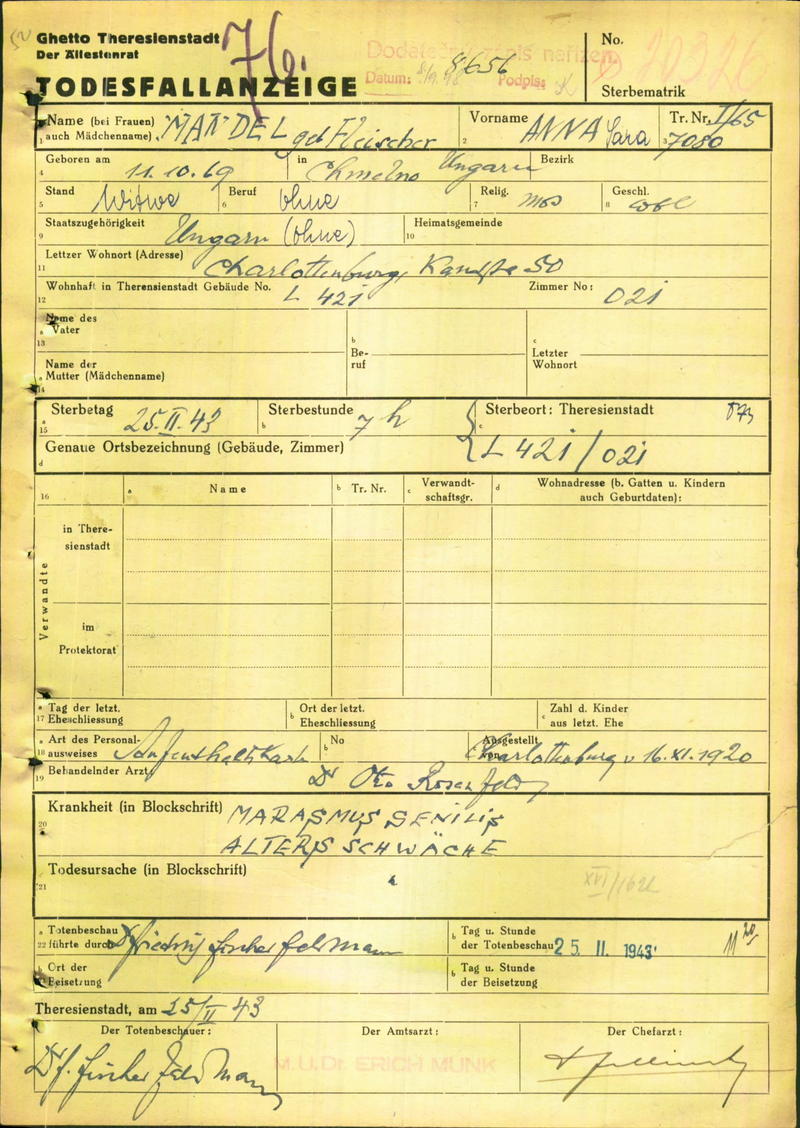 Ghetto Theresienstadt
Der Ältestenrat
TODESFALLANZEIGE
Dodatečný zápis nařízen.
Datum: Podpis:
8656
No. 20326
Sterbematrik
Name (bei Frauen) auch Mädchenname) MANDEL geb Fleischer
Vorname ANNA Sara
Tr. Nr. I/65 7080
Geboren am 11.10.69 in Ungarn Bezirk
Stand Witwe Beruf ohne Relig. mos Geschl.
Staatszugehörigkeit Ungarn (ohne) Heimatsgemeinde
Lettzer Wohnort (Adresse) Charlottenburg, 50
Wohnhaft in Therensienstadt Gebäude No. L 421 Zimmer No: 021
Name des Vater
Beruf
Letzter Wohnort
Name der Mutter (Mädchenname)
Sterbetag 25.II.43 Sterbestunde 7 h Sterbeort: Theresienstadt
Genaue Ortsbezeichnung (Gebäude, Zimmer) L 421/021
16 Name Tr. Nr. Verwandtschaftsgr. Wohnadresse (b. Gatten u. Kindern auch Geburtdaten):
Verwandte
in Theresienstadt
im Protektorat
17 Tag der letzt. Eheschliessung Ort der letzt. Eheschliessung Zahl d. Kinder aus letzt. Ehe
18 Art des Personalausweises Aufenthaltskarte No Ausgestellt von Charlottenburg v 16.XI.1920
19 Behandelnder Arzt Dr Otto Rosenfeld
20 Krankheit (in Blockschrift) MARASMUS SENILIS
ALTERSSCHWÄCHE
21 Todesursache (in Blockschrift)
XVI/162
22 Totenbeschau führte durch Dr Friedrich Fischer Feldmann Tag u. Stunde der Totenbeschau 25. II. 1943 11 20
Ort der Beisetzung Tag u. Stunde der Beisetzung
Theresienstadt, am 25/II 43
Der Totenbeschauer: Der Amtsarzt: Der Chefarzt:
Dr F. Fischer Feldmann
M.U.Dr. ERICH MUNK